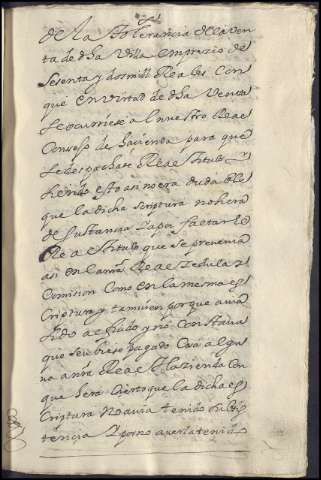 de la tolerancia de la ven
ta de dha Villa en prezio de
sesenta y dos mil Reales Con
que en virtud de dha Venta
se ocurriese a l nuestro Real
Consejo de hacienda para que
se despachase Real titulo y
siendo esto asi no era duda de
que la dicha scriptura no hera
de sustancia por faltarle
Real titulo que se prevenia
asi en la nra Real Zedula y
Comision Como en la mesma es
criptura y tamvien porque avia
sido a el fiado y no Constava
que se ubiese pagado Cosa algu
na a nra Real Hazienda Con
que hera Cierto que la dicha es
Criptura no avia tenido subsis
tencia y por no averla tenido